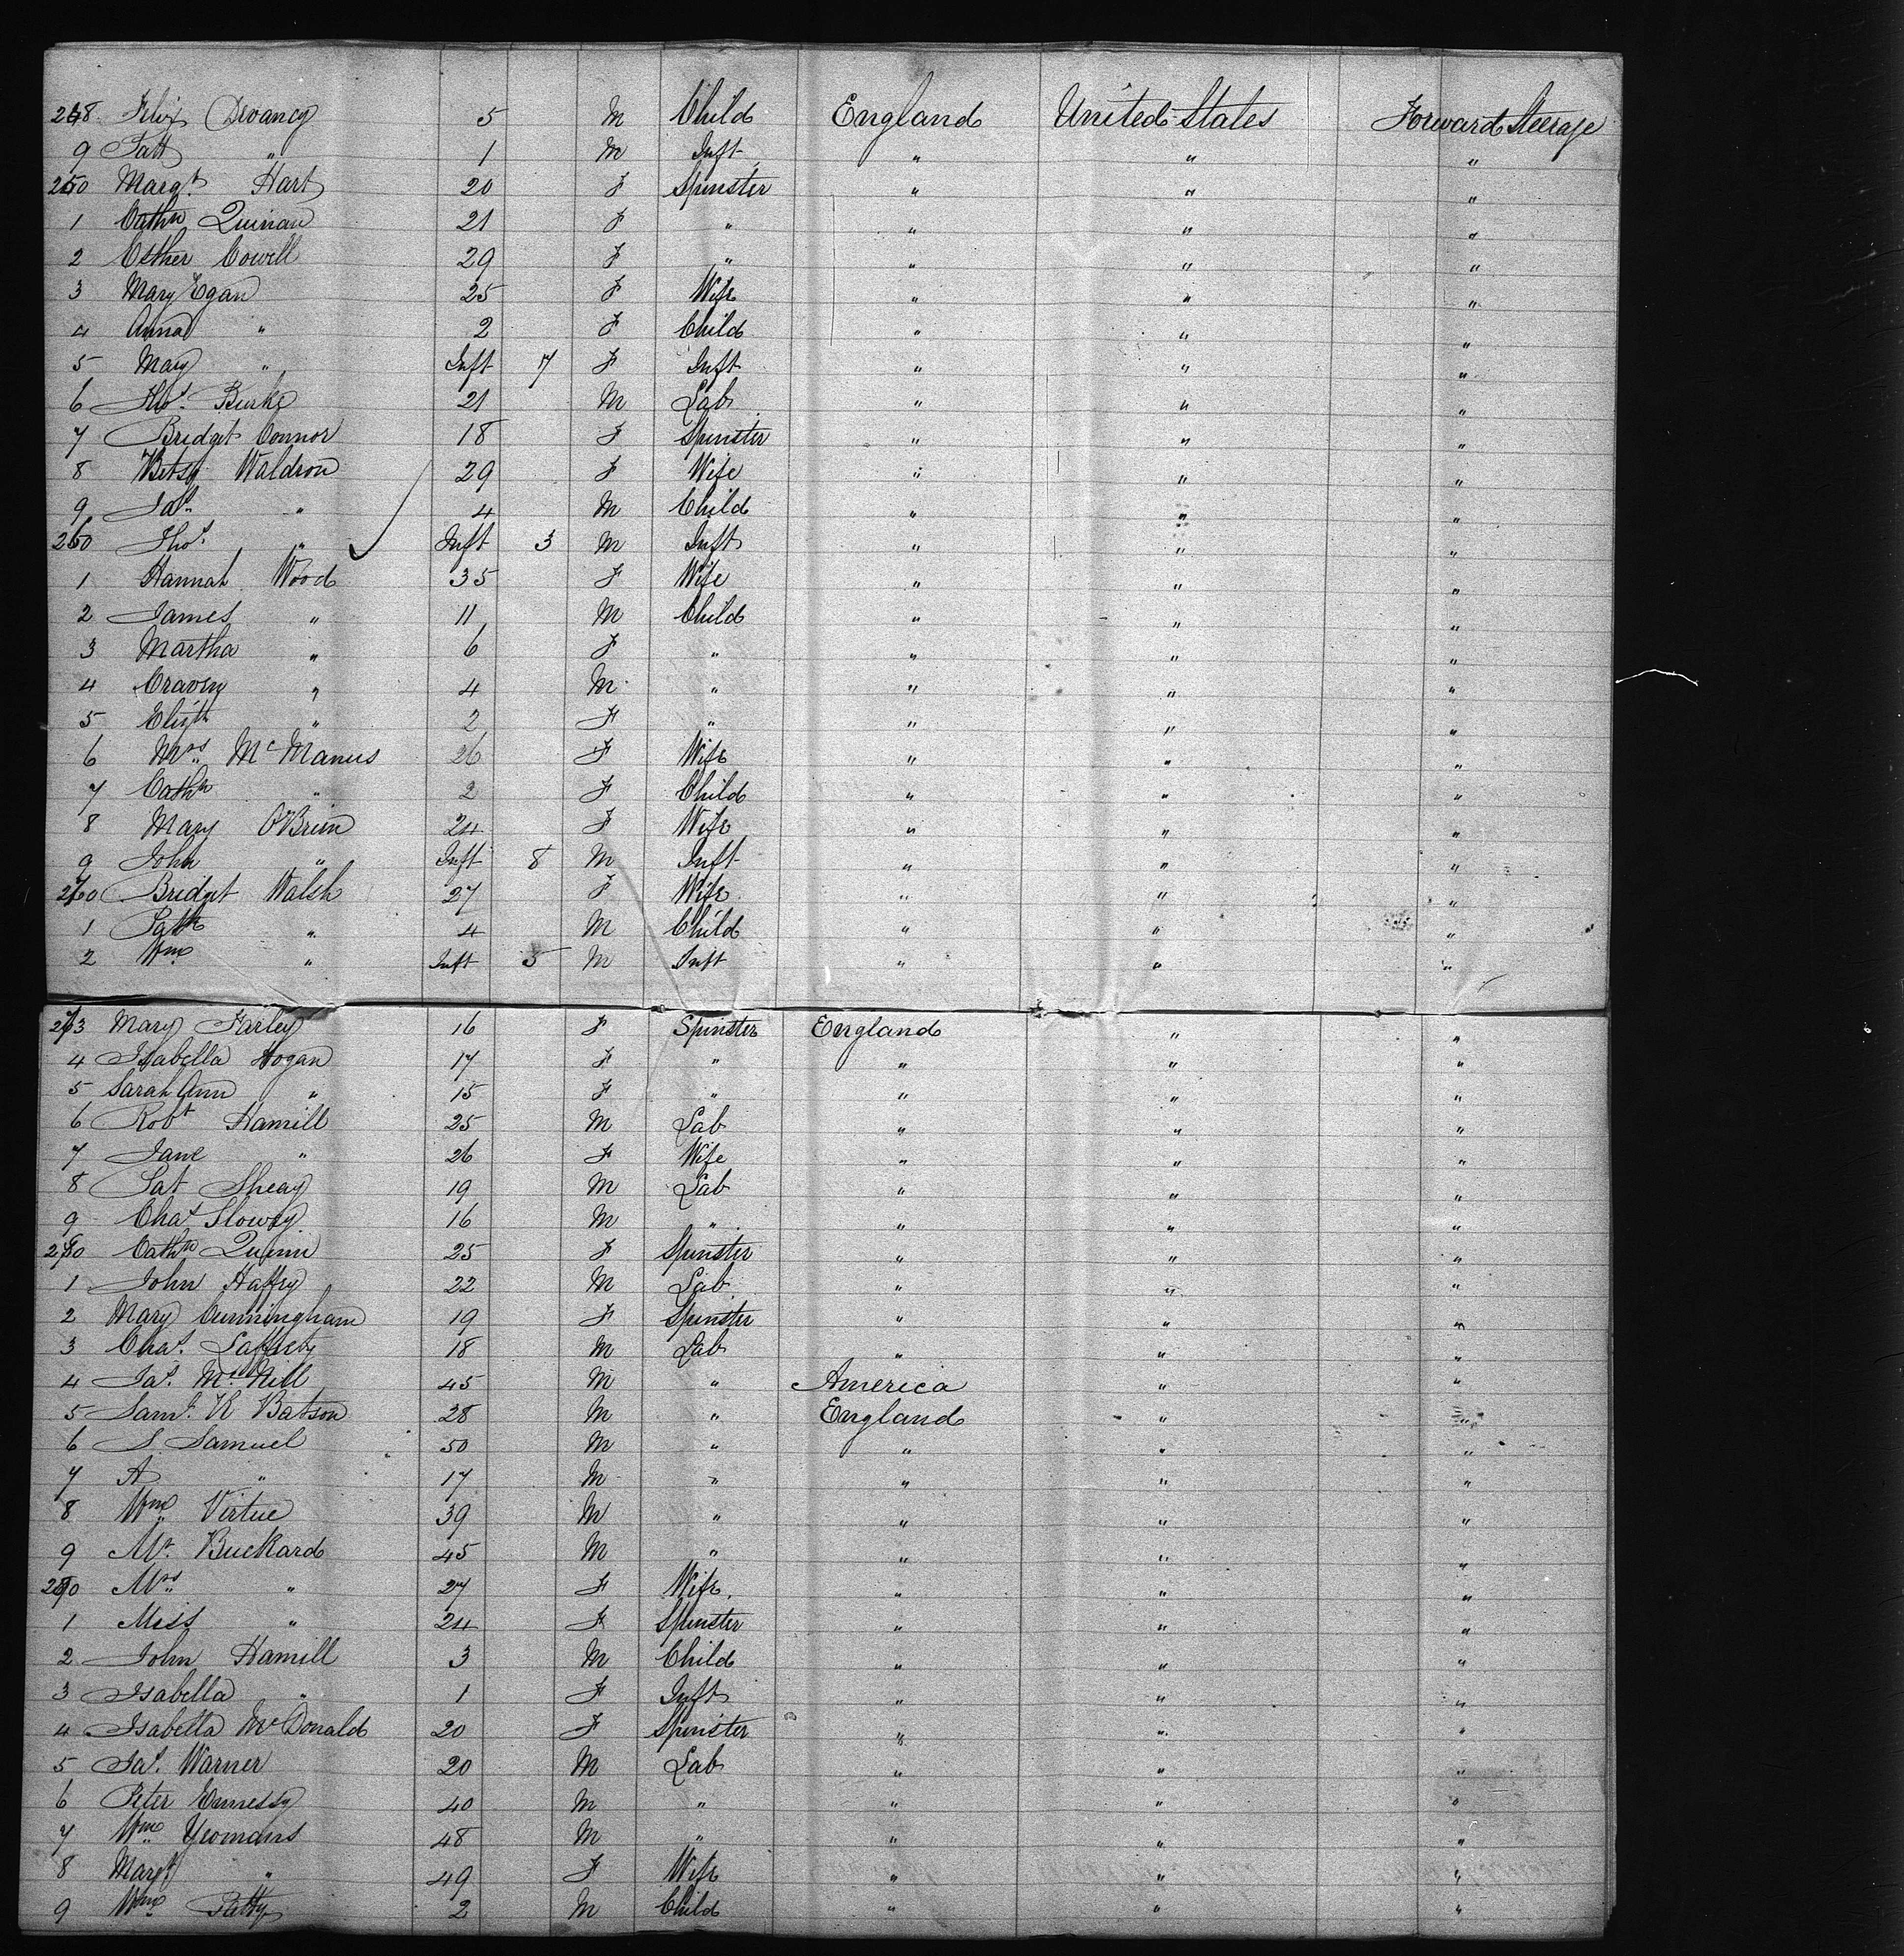 248 Felix Devancy 5 M Child England United States Forward Steerage
9 Patt " 1 M Inft " " "
250 Margt. Hart 20 F Spinster " " "
1 Cathn Quinan 21 F " " " "
2 Esther Cowell 29 F " " " "
3 Mary Egan 25 F Wife " " "
4 Anna " 2 F Child " " "
5 Mary " Inft 7 F Inft " " "
6 Thos. Burke 21 M Lab " " "
7 Bridget Connor 18 F Spinster " " "
8 Betsy Waldron 29 F Wife " " "
9 Jas. " 4 M Child " " "
260 Thos. " Inft 3 M Inft " " "
1 Hannah Wood 35 F Wife " " "
2 James " 11 M Child " " "
3 Martha " 6 F " " " "
4 Craven " 4 M " " " "
5 Elizth " 2 F " " " "
6 Mrs. McManus 26 F Wife " " "
7 Cathn " 2 F Child " " "
8 Mary O'Brien 24 F Wife " " "
9 John " Inft 8 M Inft " " "
270 Bridget Walsh 27 F Wife " " "
1 Patk " 4 M Child " " "
2 Wm " Inft 5 M Inft " " "
273 Mary Farley 16 F Spinster England " "
4 Isabella Hogan 17 F " " " "
5 Sarah Ann " 15 F " " " "
6 Robt Hamill 25 M Lab " " "
7 Jane " 26 F Wife " " "
8 Pat Sheay 19 M Lab " " "
9 Chas Slowey 16 M " " " "
280 Cathn Quinn 25 F Spinster " " "
1 John Haffey 22 M Lab " " "
2 Mary Cunningham 19 F Spinster " " "
3 Chas. Lafferty 18 M Lab " " "
4 Jas. McNill 45 M " America " "
5 Saml. R Batson 28 M " England " "
6 S Samuel 50 M " " " "
7 A " 17 M " " " "
8 Wm. Virtue 39 M " " " "
9 Mr. Buckard 45 M " " " "
290 Mrs. " 27 F Wife " " "
1 Miss " 24 F Spinster " " "
2 John Hamill 3 M Child " " "
3 Isabella " 1 F Inft " " "
4 Isabella McDonald 20 F Spinster " " "
5 Jas. Warner 20 M Lab " " "
6 Peter Ennessy 40 M " " " "
7 Wm. Yeomans 48 M " " " "
8 Margt. " 49 F Wife " " "
9 Wm. Patty 2 M Child " " "